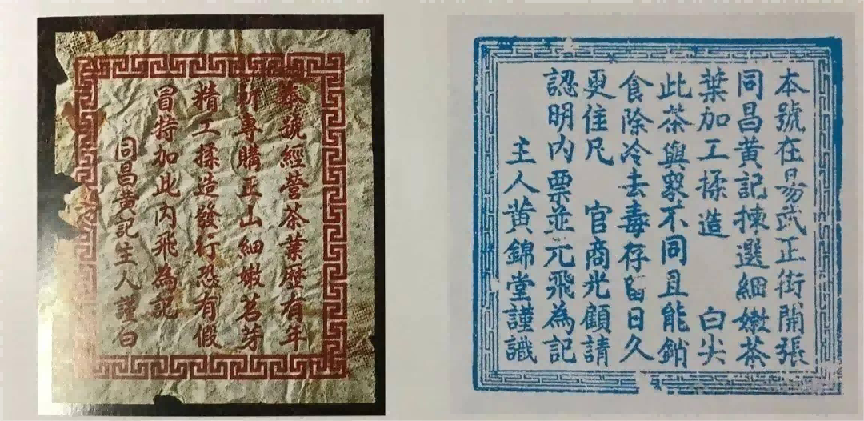 本號經營茶葉歷有年
所專購正山細嫩茗芽
精工揉造發行恐有假
冒特加此內飛為記
同昌黃記主人謹白
本號在易武正街開張
同昌黃記揀選細嫩茶
葉加工揉造 白尖
此茶與眾不同且能銷
食除冷去毒存留日久
更佳凡 官商光顧請
認明內票並元飛為記
主人黃錦堂謹識